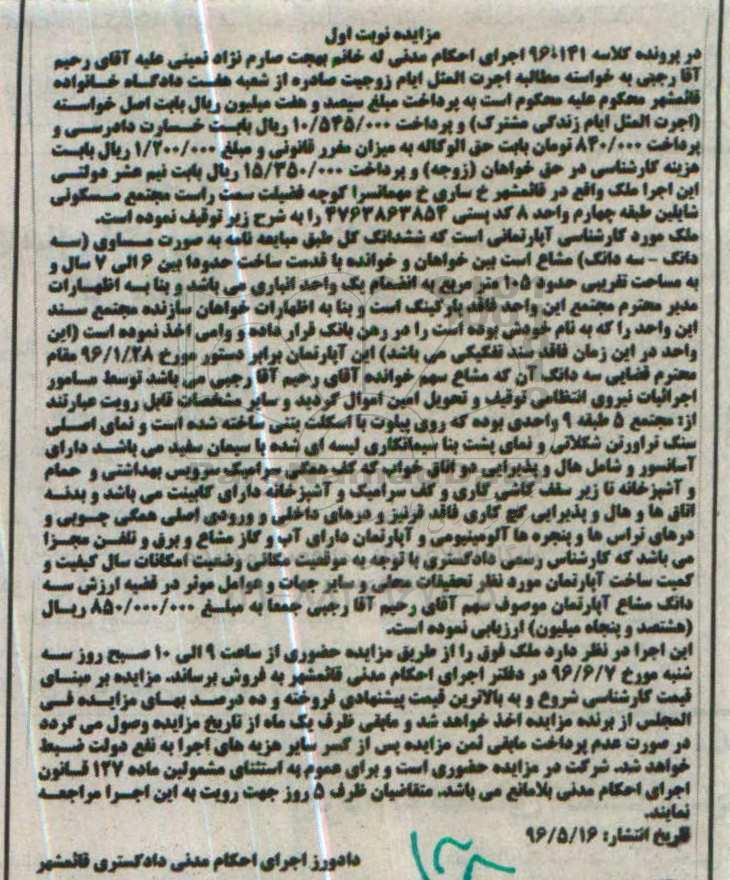 مزایده نوبت اول
در پرونده کلاسه ۹۶۰۱۴۱ اجرای احکام مدنی له خانم بهجت صارم نژاد ثمینی علیه آقای رحیم
آقا رجبی به خواسته مطالبه اجرت المثل ایام زوجیت صادره از شعبه هشت دادگاه خانواده
قائمشهر محکوم علیه محکوم است به پرداخت مبلغ سیصد و هفت میلیون ریال بابت اصل خواسته
(اجرت المثل ایام زندگی مشترک) و پرداخت ۱۰/۵۴۵/۰۰۰ ریال بابت خسارت دادرسی و
پرداخت ۸۴۰/۰۰۰ تومان بابت حق الوکاله به میزان مقرر قانونی و مبلغ ۱/۲۰۰/۰۰۰ ریال بابت
هزینه کارشناسی در حق خواهان (زوجه) و پرداخت ۱۵/۳۵۰/۰۰۰ ریال بابت نیم عشر دولتی
این اجرا ملک واقع در قائمشهر خ ساری خ مهمانسرا کوچه فضیلت سمت راست مجتمع مسکونی
شایلین طبقه چهارم واحد ۸ کد پستی ۴۷۶۳۸۶۳۸۵۴ را به شرح زیر توقیف نموده است.
ملک مورد کارشناسی آپارتمانی است که ششدانگ کل طبق مبایعه نامه به صورت مساوی (سه
دانگ - سه دانگ) مشاع است بین خواهان و خوانده با قدمت ساخت حدودا بین ۶ الی ۷ سال و
به مساحت تقریبی حدود ۱۰۵ متر مربع به انضمام یک واحد انباری می باشد و بنا به اظهارات
مدیر محترم مجتمع این واحد فاقد پارکینگ است و بنا به اظهارات خواهان سازنده مجتمع سند
این واحد را که به نام خودش بوده است را در رهن بانک قرار داده و وامی اخذ نموده است (این
واحد در این زمان فاقد سند تفکیکی می باشد) این آپارتمان برابر دستور مورخ ۹۶/۱/۲۸ مقام
محترم قضایی سه دانگ آن که مشاع سهم خوانده آقای رحیم آقا رجبی می باشد توسط مامور
اجرائیات نیروی انتظامی توقیف و تحویل امین اموال گردید و سایر مشخصات قابل رویت عبارتند
از: مجتمع ۵ طبقه ۹ واحدی بوده که روی پیلوت با اسکلت بتنی ساخته شده است و نمای اصلی
سنگ تراورتن شکلاتی و نمای پشت بنا سیمانکاری لیسه ای شده با سیمان سفید می باشد دارای
آسانسور و شامل هال و پذیرایی دو اتاق خواب که کف همگی سرامیک سرویس بهداشتی و حمام
و آشپزخانه تا زیر سقف کاشی کاری و کف سرامیک و آشپزخانه دارای کابینت می باشد و بدنه
اتاق ها و هال و پذیرایی گچ کاری فاقد قرنیز و درهای داخلی و ورودی اصلی همگی چوبی و
درهای تراس ها و پنجره ها آلومینیومی و آپارتمان دارای آب و گاز مشاع و برق و تلفن مجزا
می باشد که کارشناس رسمی دادگستری با توجه به موقعیت مکانی وضعیت امکانات سال کیفیت و
کمیت ساخت آپارتمان مورد نظر تحقیقات محلی و سایر جهات و عوامل موثر در قضیه ارزش سه
دانگ مشاع آپارتمان موصوف سهم آقای رحیم آقا رجبی جمعا به مبلغ ۸۵۰/۰۰۰/۰۰۰ ریال
(هشتصد و پنجاه میلیون) ارزیابی نموده است.
این اجرا در نظر دارد ملک فوق را از طریق مزایده حضوری از ساعت ۹ الی ۱۰ صبح روز سه
شنبه مورخ ۹۶/۶/۷ در دفتر اجرای احکام مدنی قائمشهر به فروش برساند. مزایده بر مبنای
قیمت کارشناسی شروع و به بالاترین قیمت پیشنهادی فروخته و ده درصد بهای مزایده فی
المجلس از برنده مزایده اخذ خواهد شد و مابقی ظرف یک ماه از تاریخ مزایده وصول می گردد
در صورت عدم پرداخت مابقی ثمن مزایده پس از کسر سایر هزیه های اجرا به نفع دولت ضبط
خواهد شد. شرکت در مزایده حضوری است و برای عموم به استثنای مشمولین ماده ۱۲۷ قانون
اجرای احکام مدنی بلامانع می باشد. متقاضیان ظرف ۵ روز جهت رویت به این اجرا مراجعه
نمایند.
تاریخ انتشار: ۹۶/۵/۱۶
دادورز اجرای احکام مدنی دادگستری قائمشهر